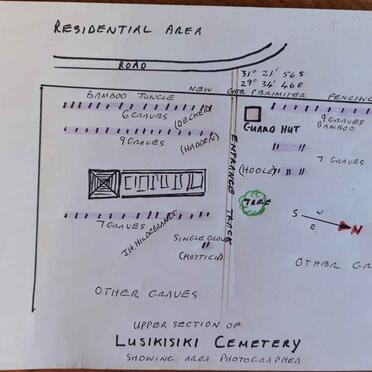 RESIDENTIAL AREA
ROAD
31° 21' 56 S
29° 34' 46 E
BAMBOO JUNGLE
NEW
GATE PERIMITER FENCING
6 GRAVES
(DECKER)
9 GRAVES
BAMBOO
GUARD HUT
9 GRAVES
(HADDEN)
ENTRANCE TRACK
7 GRAVES
(HOOLE)
TREE
S
W
E
N
7 GRAVES
J.H. HILDEBRANDT
SINGLE GRAVE
(KOTTICH)
OTHER GR
OTHER GRAVES
UPPER SECTION OF
LUSIKISIKI CEMETERY
SHOWING AREA PHOTOGRAPHED